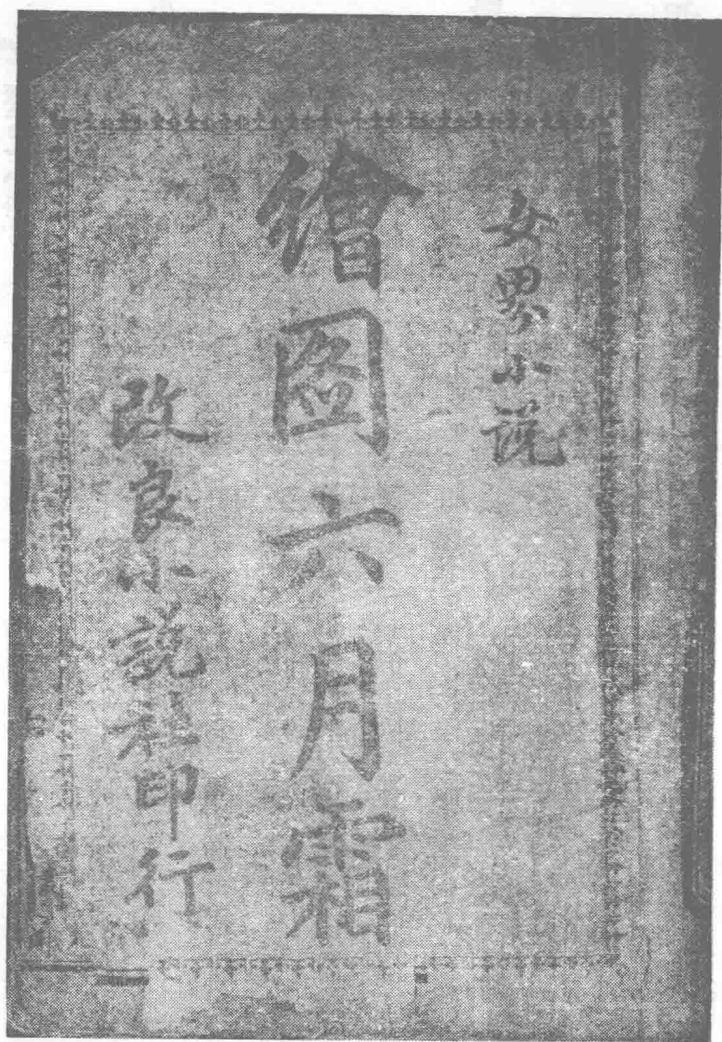 女界小説
繪圖六月霜
改良小説社印行